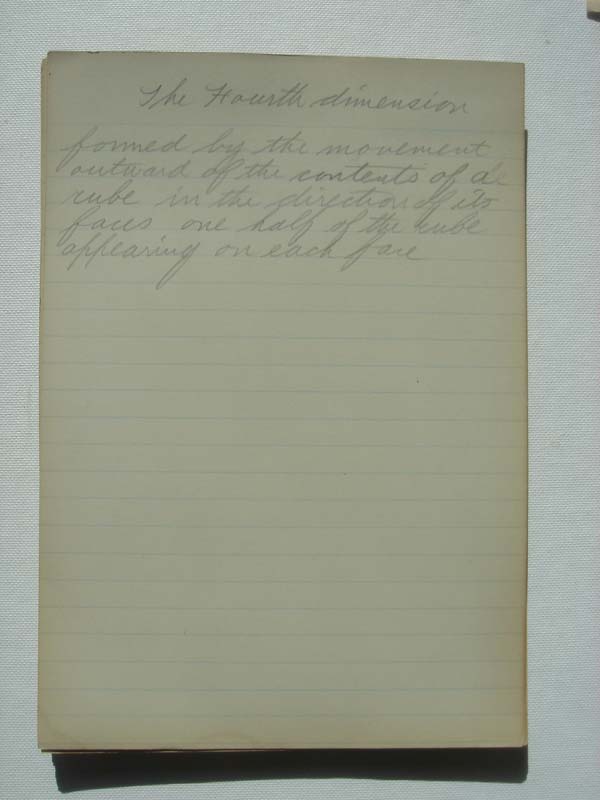 The Fourth dimension
formed by the movement
outward of the contents of a
cube in the direction of its
faces one half of the cube
appearing on each face